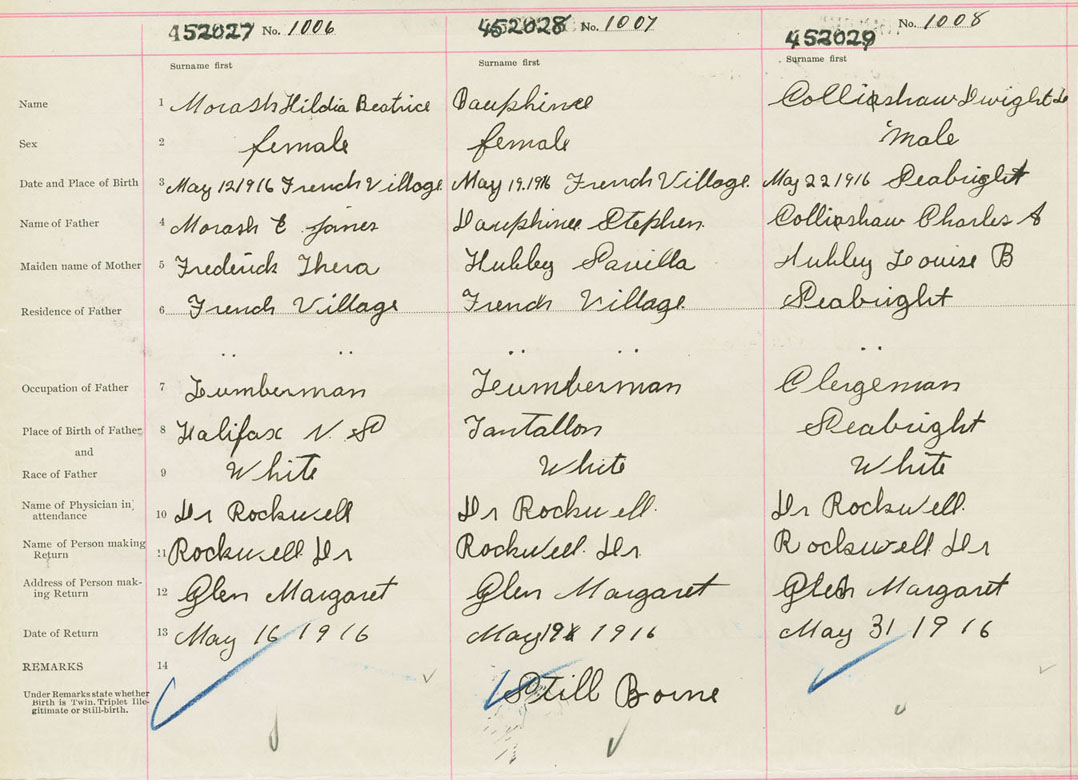 452027 No. 1006 452028 No. 1007 452029 No. 1008
Surname first Surname first Surname first
Name 1 Morash Hildia Beatrice Dauphinee Collishaw Dwight
Sex 2 female female Male
Date and Place of Birth 3 May 12 1916 French Village May 19.1916 French Village. May 22 1916 Seabright
Name of Father 4 Morash E James Dauphinee Stephen Collishaw Charles A
Maiden name of Mother 5 Frederick Thera Hubley Savilla Hubley Louise B
Residence of Father 6 French Village French Village Seabright
Occupation of Father 7 Lumberman Leumberman Clergeman
Place of Birth of Father 8 Halifax N. S Tantallon Seabright
and
Race of Father 9 White White White
Name of Physician in attendance 10 Dr Rockwell Dr Rockwell. Dr Rockwell.
Name of Person making Return 11 Rockwell Dr Rockwell. Dr Rockwell Dr
Address of Person mak-ing Return 12 Glen Margaret Glen Margaret Glen Margaret
Date of Return 13 May 16 1916 May 19 1916 May 31 1916
REMARKS 14 Still Borne
Under Remarks state whether
Birth is Twin. Triplet Ille-
gitimate or Still-birth.